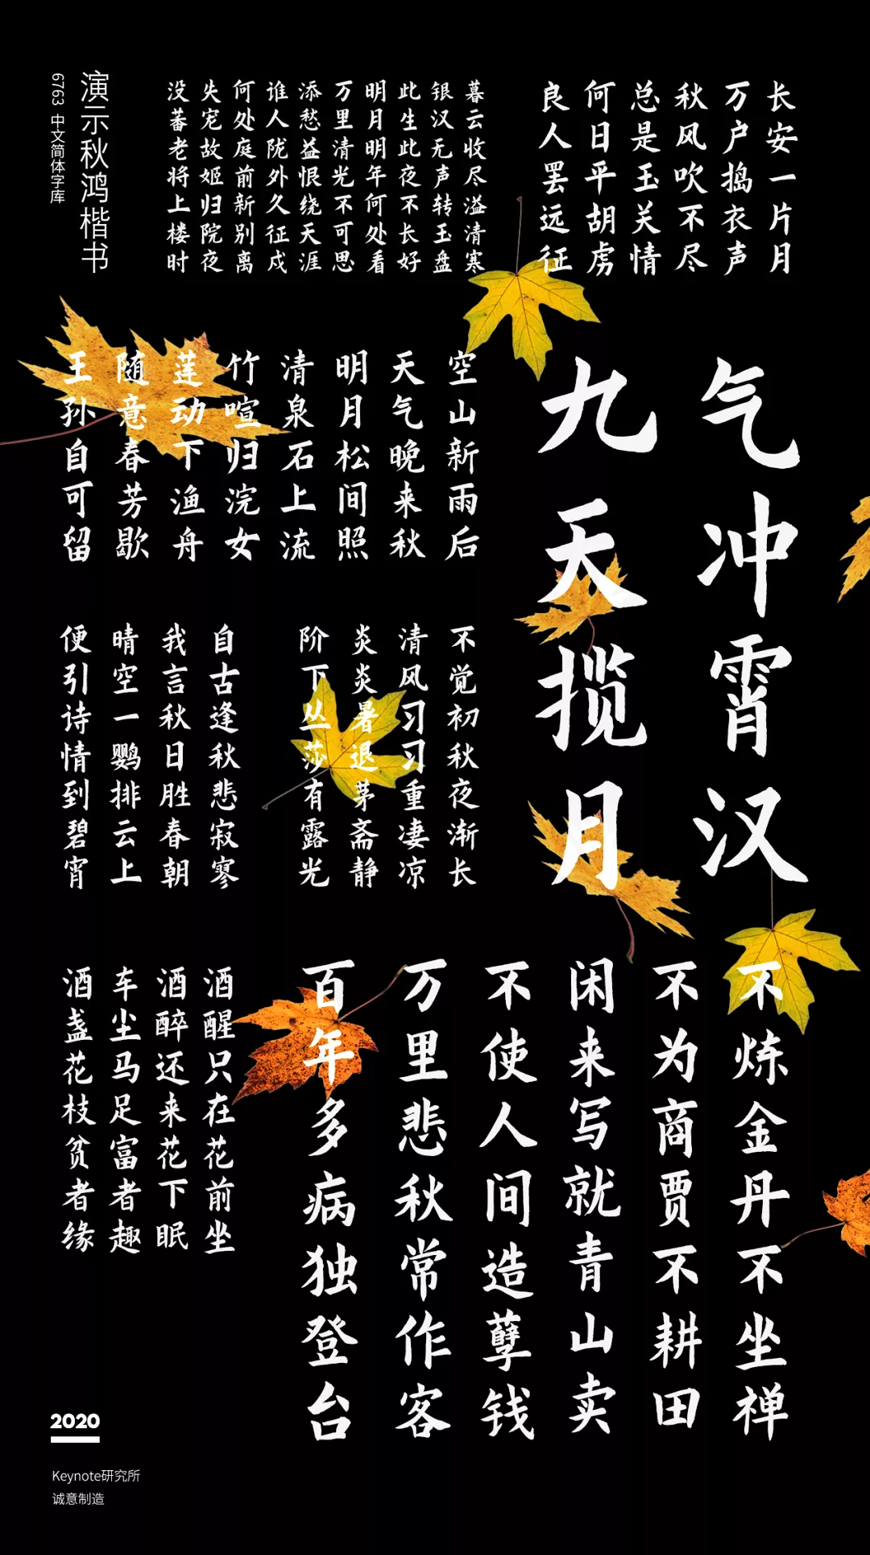 长安一片月
万户捣衣声
秋风吹不尽
总是玉关情
何日平胡虏
良人罢远征
暮云收尽溢清寒
银汉无声转玉盘
此生此夜不长好
明月明年何处看
万里清光不可思
添愁益恨绕天涯
谁人陇外久征戍
何处庭前新别离
失宠故姬归院夜
没蕃老将上楼时
演示秋鸿楷书
6763 中文简体字库
气冲霄汉
九天揽月
空山新雨后
天气晚来秋
明月松间照
清泉石上流
竹喧归浣女
莲动下渔舟
随意春芳歇
王孙自可留
不觉初秋夜渐长
清风习习重凄凉
炎炎暑退茅斋静
阶下丛莎有露光
自古逢秋悲寂寥
我言秋日胜春朝
晴空一鹦排云上
便引诗情到碧宵
不炼金丹不坐禅
不为商贾不耕田
闲来写就青山卖
不使人间造孽钱
万里悲秋常作客
百年多病独登台
酒醒只在花前坐
酒醉还来花下眠
车尘马足富者趣
酒盏花枝贫者缘
2020
Keynote研究所
诚意制造